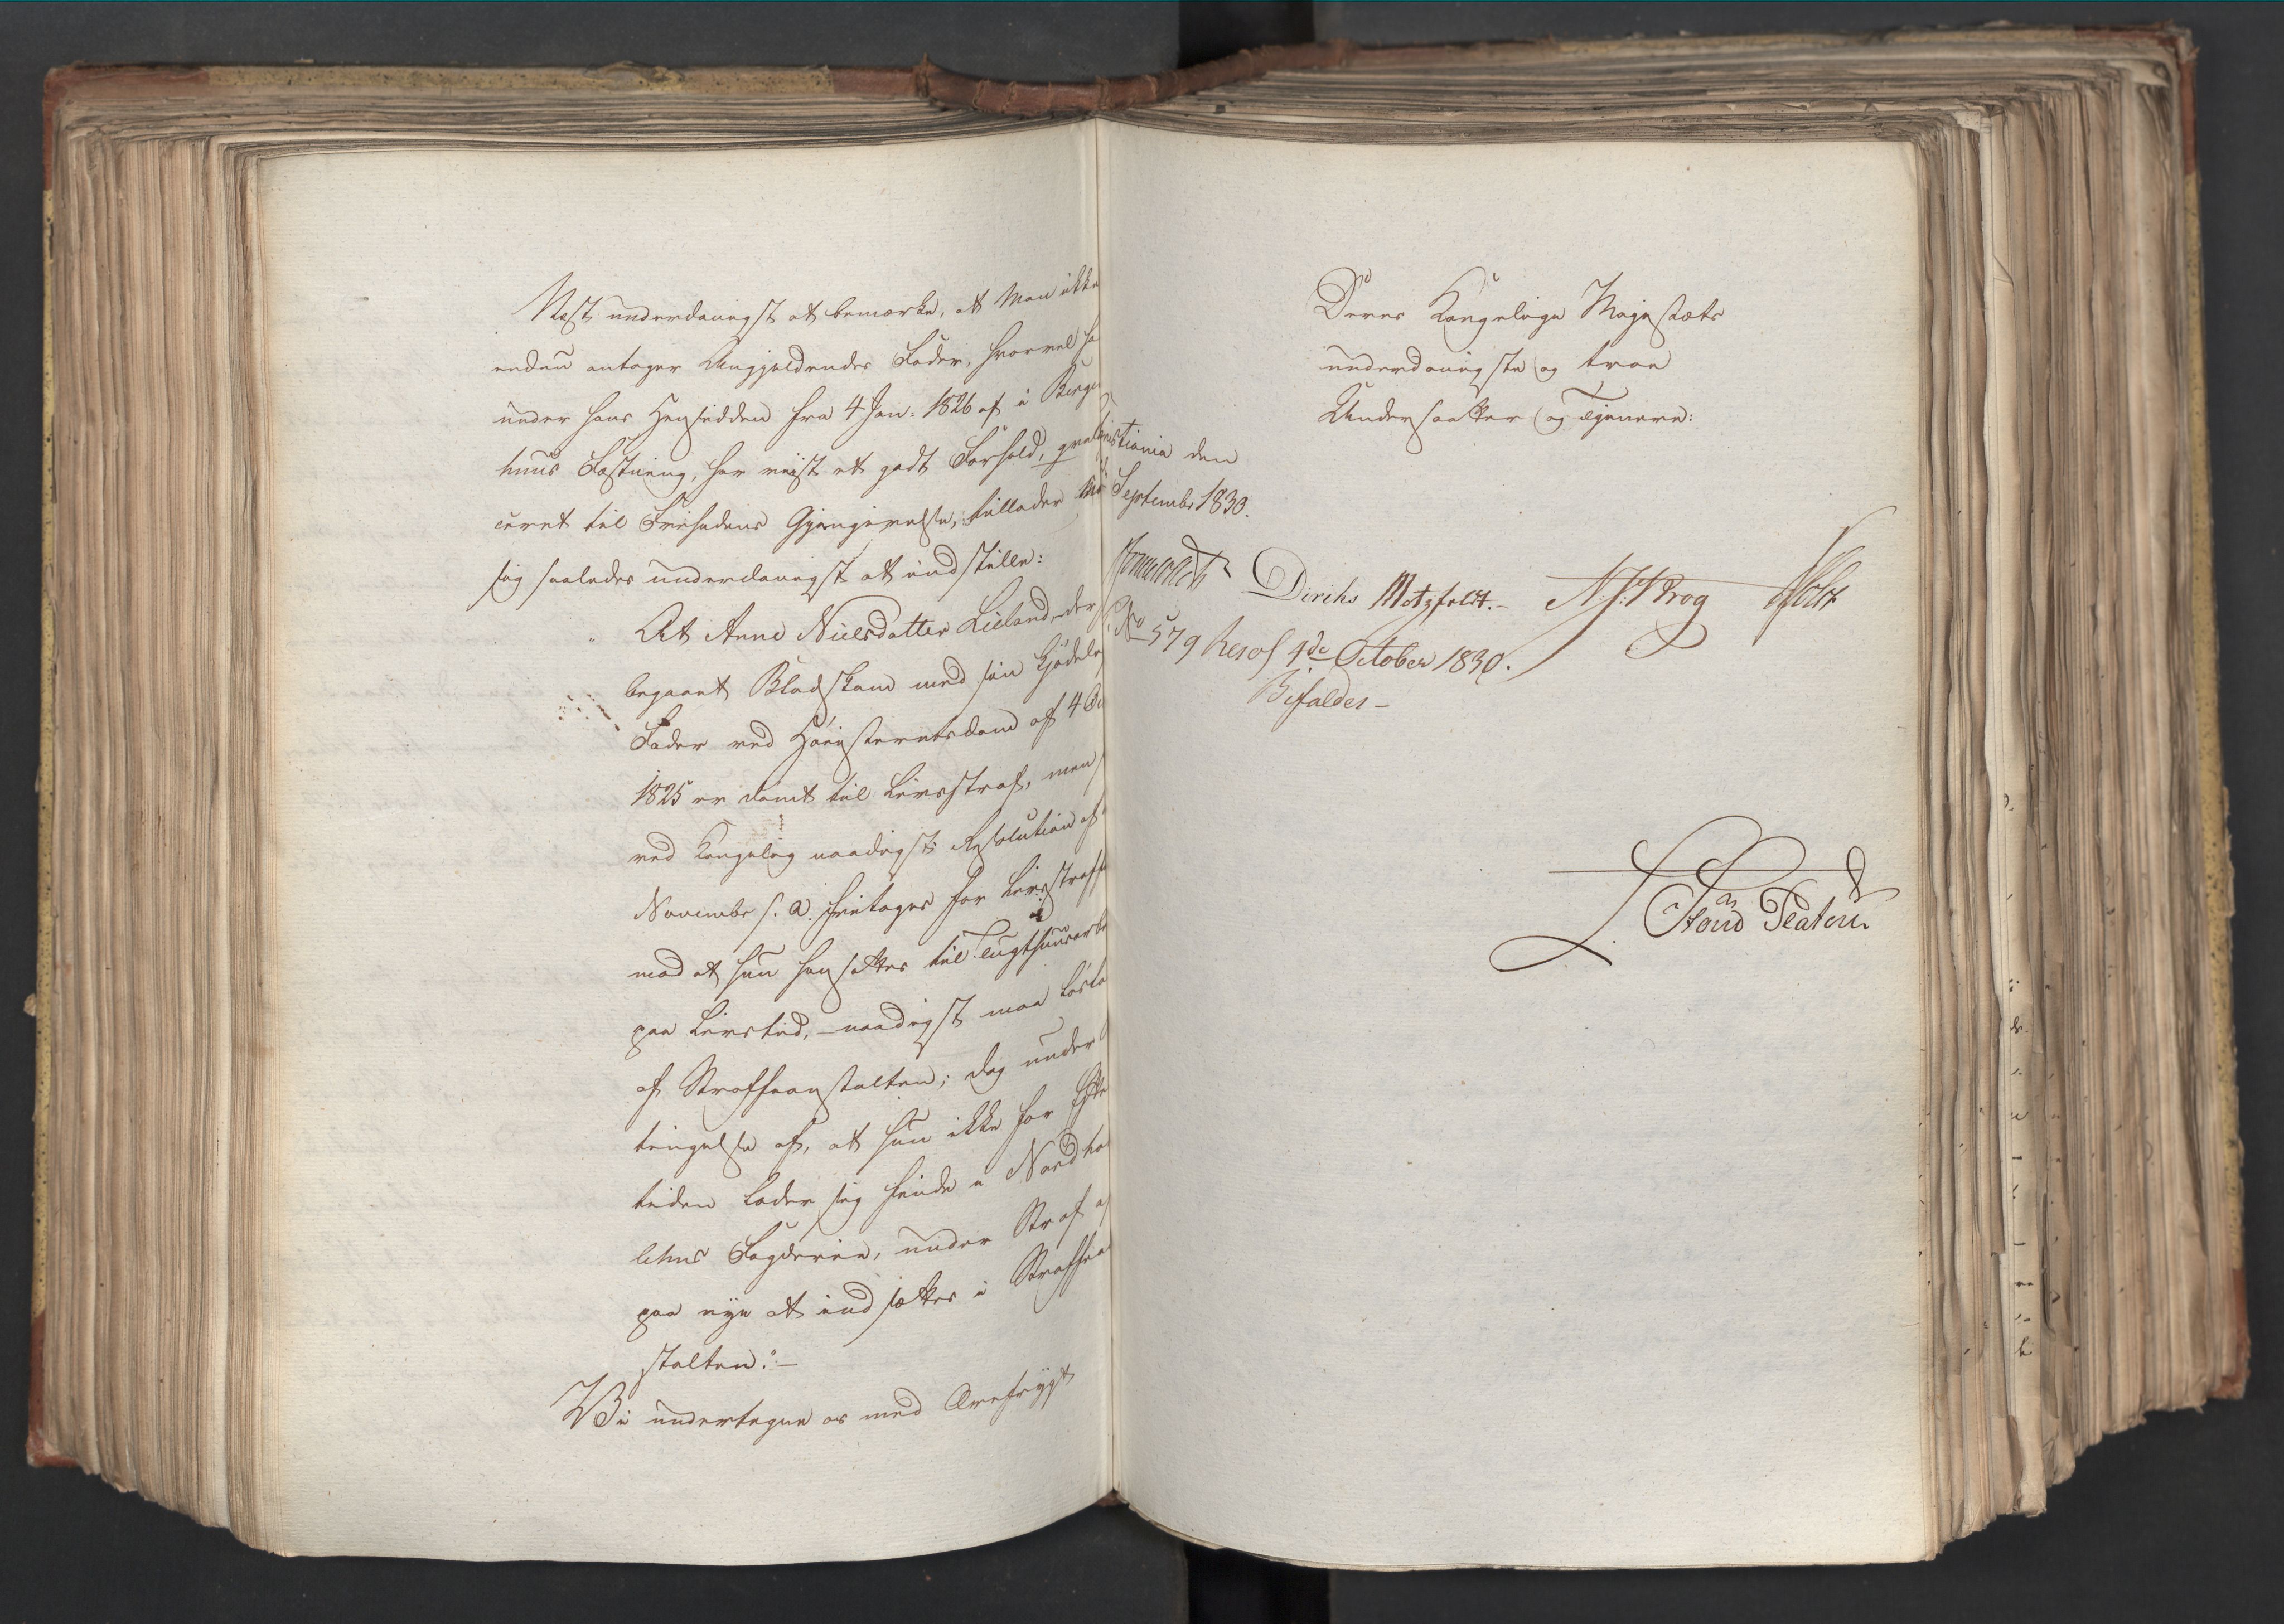 Næst underdanigst at bemærke, at man ikke
enten antager Angjeldendes Fader, hvorvel ha
under hans Hensidden fra 4 Jan: 1826 af i Bergen
huus Fæstning, har viist et godt Forhold, qvalifi
ceret til Frihedens Gjengivelse, tillader Ma
sig saaledes underdanigst at indstille:
At Anne Nielsdatter Lieland, der f
begaaet Blodskam med sin kjødelig
Fader ved Høiesteretsdom af 4 Oc
1825 er dømt til Livsstraf, men
ved Kongelig naadigst Resolution af
Novembr s. A. fritages for Livsstraffen
mod at hun hensættes til Tugthuusarbe
paa Livstid, – naadigst maa løsla
af Straffeanstalten; dog under B
tingelse af, at hun ikke for Efter
tiden lader sig finde i Nordho
lehns Fogderie, under Straf af
paa nye at indsættes i Straffea
stalten." –
Vi undertegne os med Ærefrygt
Deres Kongelige Majestæts
underdanigste og troe
Undersaatter og Tjenere:
istiania den
Septembr 1830.
Diriks Motzfeldt. – N. J. Krog Holst
No 579 Resol 4de October 1830.
Bifaldes –
L. Stoud Platou